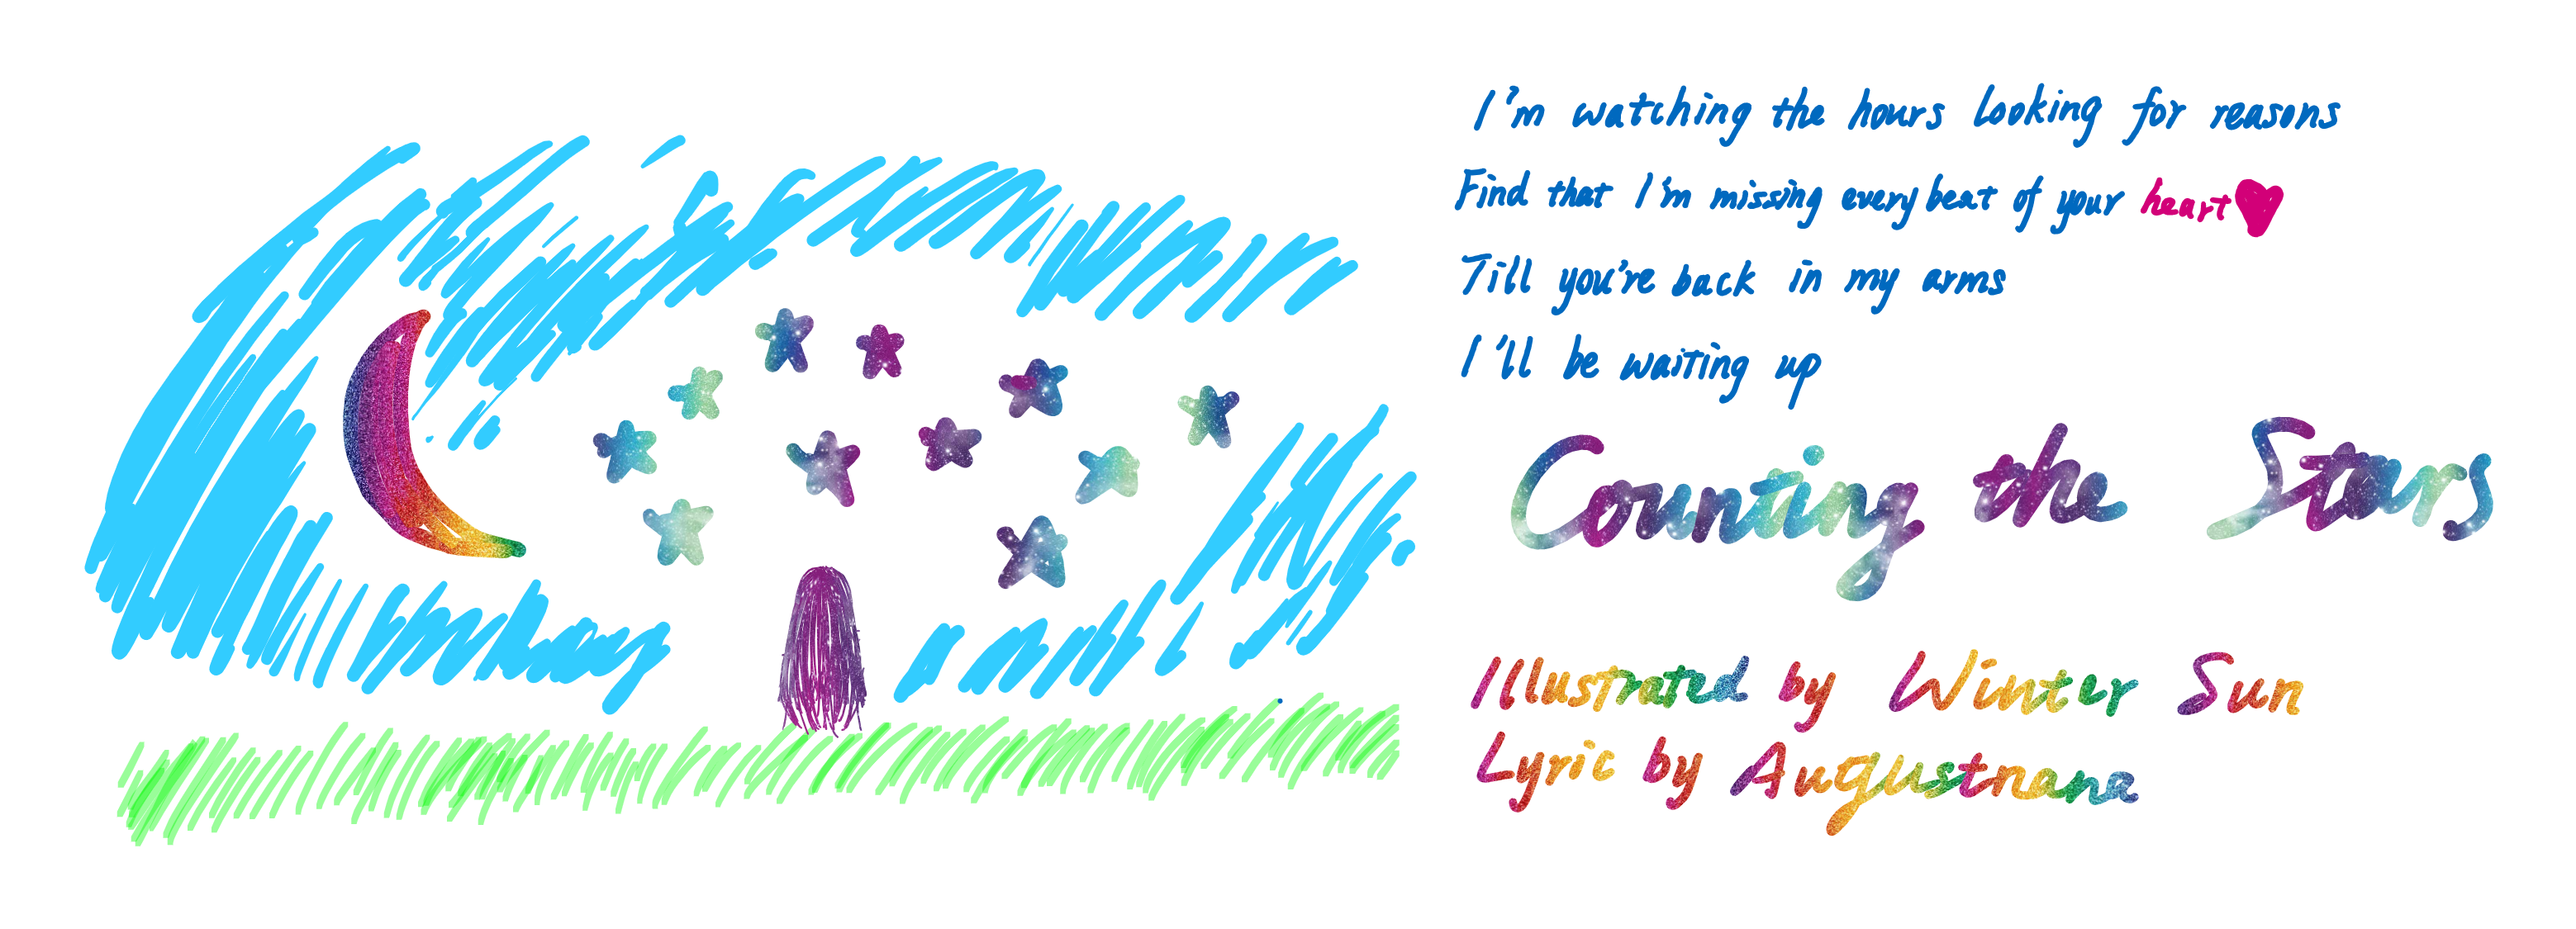 I'm watching the hours looking for reasons
Find that I'm missing every beat of your heart
Till you're back in my arms
I'll be waiting up
Counting the Stars
Illustrated by Winter Sun
Lyric by Augustnana